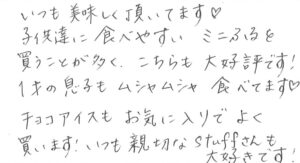 いつも美味しく頂いてます♡
子供達に食べやすい ミニふるを
買うことが多く、こちらも大好評です!
1才の息子もムシャムシャ食べてます♡
チョコアイスもお気に入りでよく
買います!いつも親切なstuffさんも
大好きです!